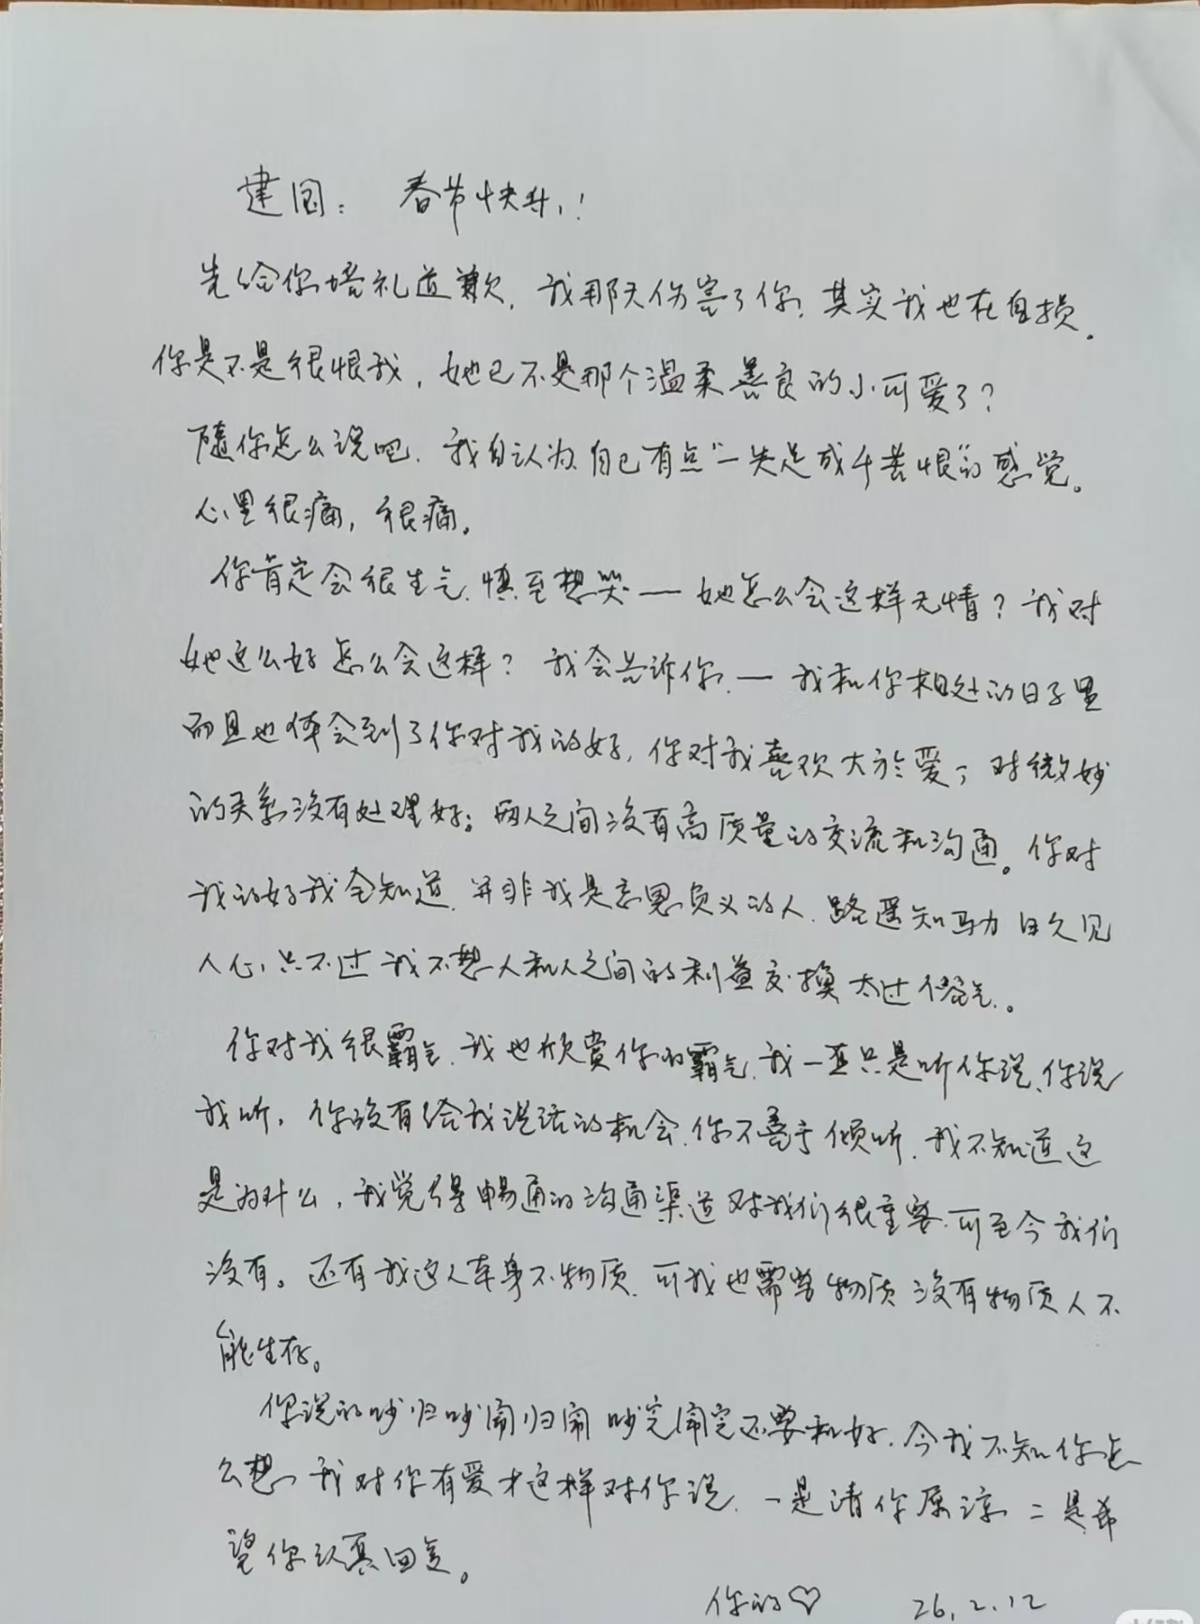 建国： 春节快乐！
先给你培礼道歉，我那天伤害了你，其实我也在自损。
你是不是很恨我，她已不是那个温柔善良的小可爱了？
随你怎么说吧，我自认为自己有点“一失足成千苦恨”的感觉。
心里很痛，很痛。
你肯定会很生气，慎至想哭——她怎么会这样无情？我对
她这么好怎么会这样？我会告诉你，——我和你相处的日子里
而且也体会到了你对我的好，你对我喜欢大於爱，对微妙
的关系没有处理好。两人之间没有高质量的交流和沟通。你对
我的好我全知道，并非我是忘恩负义的人，路遥知马力 日久见
人心，只不过我不想人和人之间的利益交换太过俗气。
你对我很霸气，我也欣赏你的霸气，我一直只是听你说、你说
我听，你没有给我说话的机会，你不善于倾听，我不知道这
是为什么，我觉得畅通的沟通渠道对我们很重要，可至今我们
没有。还有我这人本身不物质，可我也需要物质 没有物质人不
能生存。
你说的吵归吵闹归闹 吵完闹完还要和好，今我不知你怎
么想，我对你有爱才这样对你说，一是请你原谅 二是希
望你认真回复。
你的♡ 26.2.12